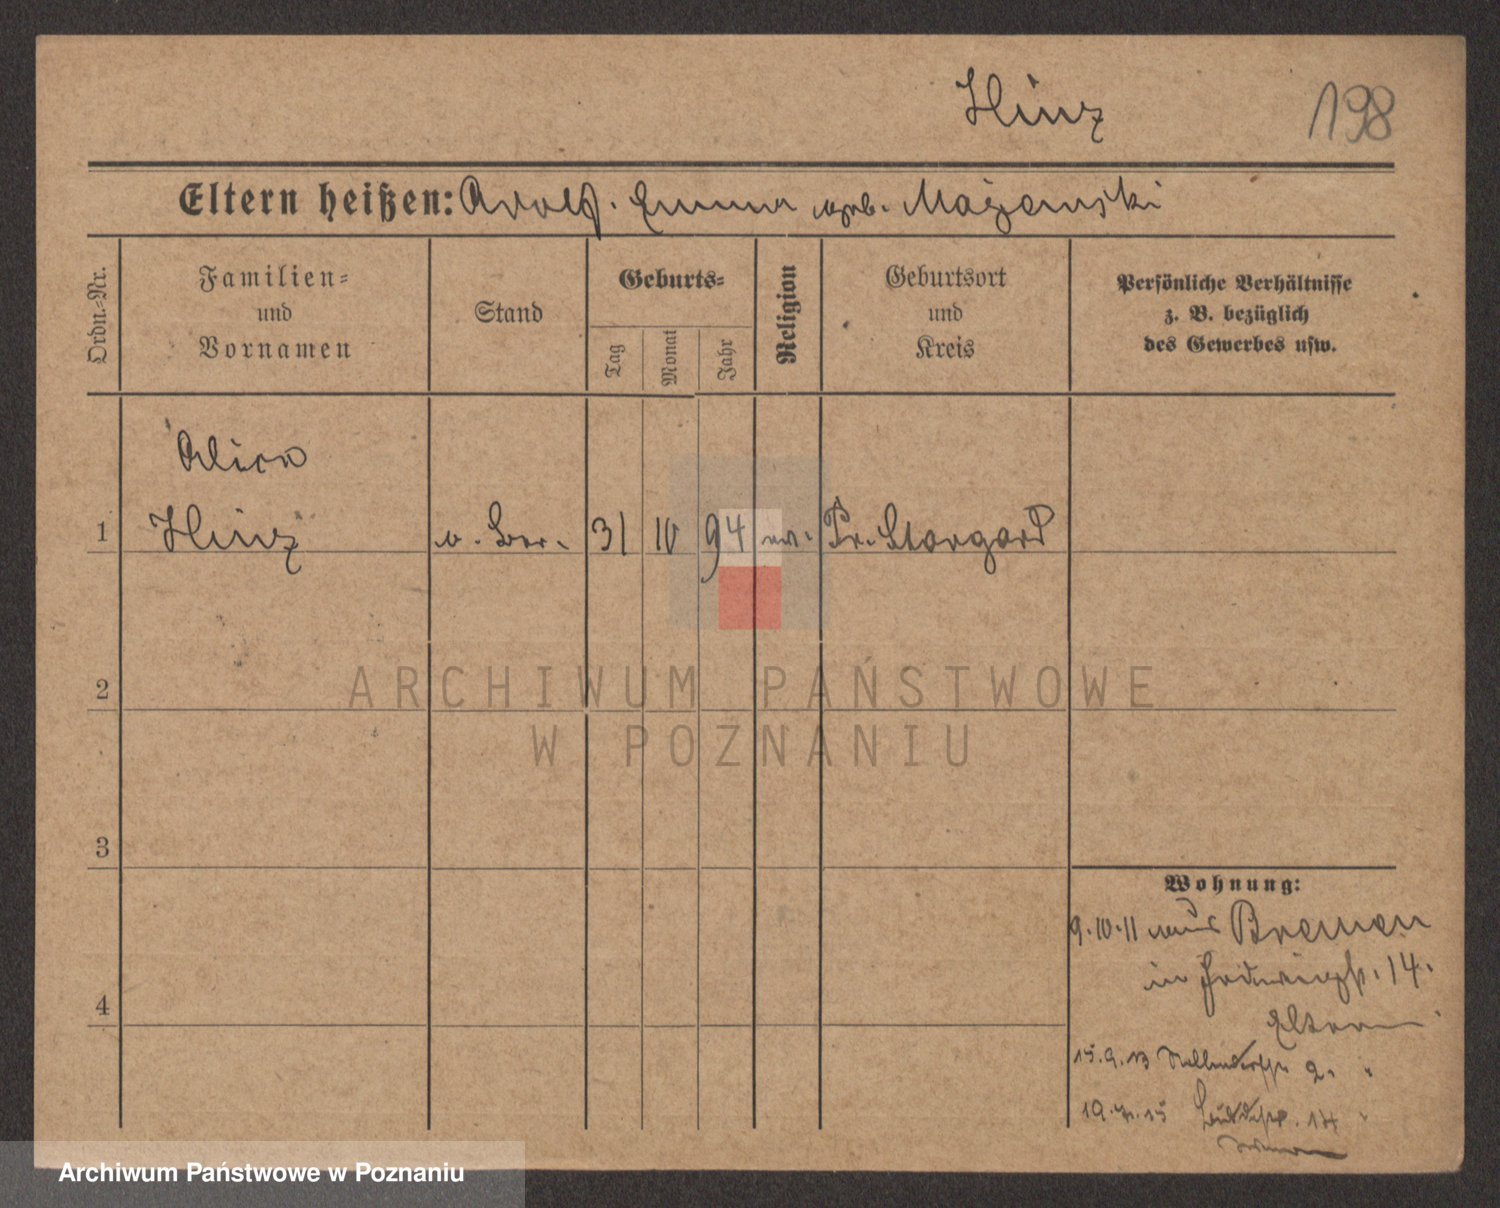 Hinz 198
Eltern heißen: Adolf. Emma geb. Mażanski
Ordn.-Nr.
Familien-
und
Vornamen
Stand
Geburts-
Tag
Monat
Jahr
Religion
Geburtsort
und
Kreis
Persönliche Verhältnisse
z. B. bezüglich
des Gewerbes usw.
Alice
1 Hinz o. Ber. 31 10 94 ev. Pr. Stargard
2
3
4
Wohnung:
9.10.11 aus Bremen
in 14.
Eltern
15.9.13 2. "
19. 15 14 "
ARCHIWUM PAŃSTWOWE
W POZNANIU
Archiwum Państwowe w Poznaniu